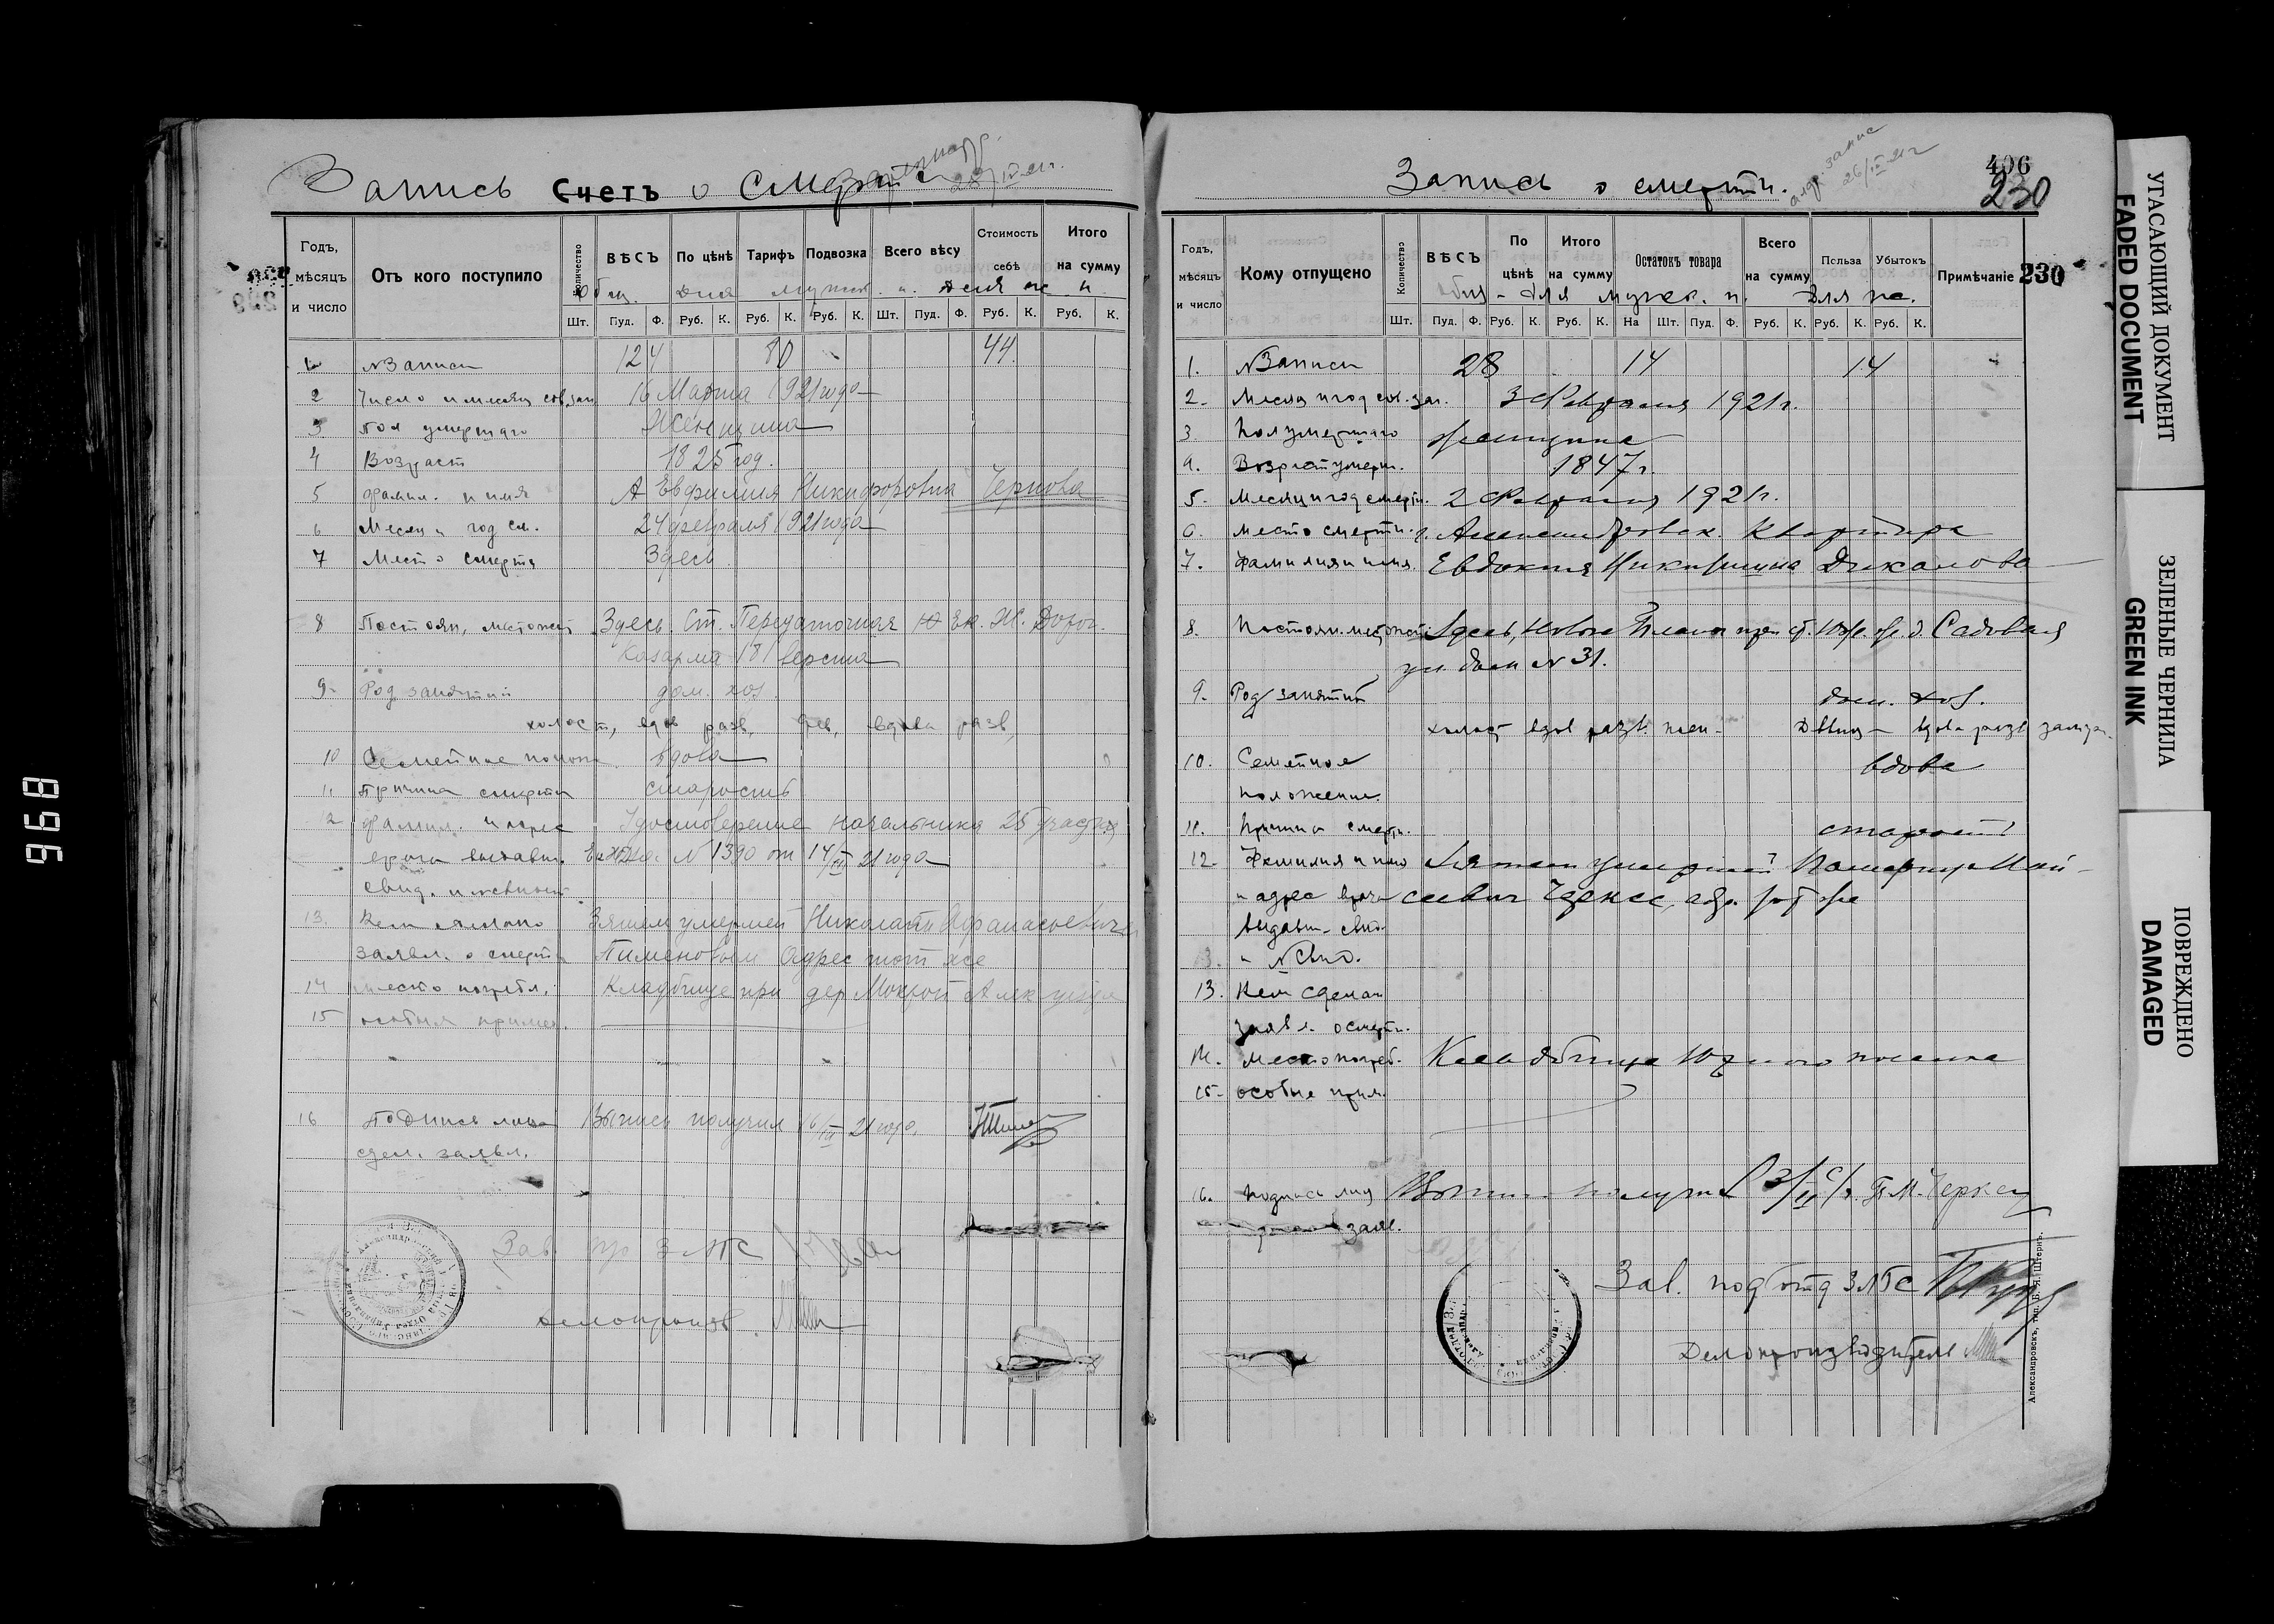 Запись Счетъ о смерти
Годъ, мѣсяцъ и число
Отъ кого поступило
Количество
ВѢСЪ
По цѣнѣ
Тарифъ
Подвозка
Всего вѣсу
Стоимость себѣ
Итого на сумму
Общ. для мужск. п. для ж. п.
Шт. Пуд. Ф. Руб. К. Руб. К. Руб. К. Шт. Пуд. Ф. Руб. К. Руб. К.
1 №Записи 124 80 44.
2 Число и месяц сов. зап 16 Марта 1921 года
3 Пол умершаго Женщина
4 Возраст 1825 год.
5 фамил. и имя Евфимия Никифоровна Чернова
6 Месяц и год см. 24 февраля 1921 года
7 Место смерти Здесь
8 Постоян. местожит. Здесь. Ст. Передаточная Ек. Ж. Дорог.
Казарма 181 верста
9. Род занятий дом. хоз.
холост, вдов разв, дев, вдова разв,
10 Семейное полож. вдова
11 Причина смерти старость
12 фамил. и адрес Удостоверение начальника 25 участка
врача выдавш. № 1390 от 14/III 21 года
свид.
13. Кем сделано Зятем умершей Николаем Афанасьевичем
заявл. о смерти Пименовым Адрес тот же
14 место погребл. Кладбище при дер Мокрой
15 особыя примеч.
16 Подпись лица Выпись получил 16/III 21 года.
сдел. заявл.
Зав. ЗАГС
Делопроизв.
Запись о смерти.
26/IV 21 г
406
230
Годъ, мѣсяцъ и число
Кому отпущено
Количество
ВѢСЪ
По цѣнѣ
Итого на сумму
Остатокъ товара
Всего на сумму
Польза
Убытокъ
Примѣчаніе
230
общ - для мужск. п. для ж.
Шт. Пуд. Ф. Руб. К. Руб. К. На Шт. Пуд. Ф. Руб. К. Руб. К. Руб. К.
1. №Записи 28 14 14
2. Месяц и год сов. зап. 3 Февраля 1921 г.
3. Пол умершаго женщина
4. Возраст умерш. 1847 г.
5. Месяц и год смерти. 2 Февраля 1921 г.
6. Место смерти. г. Александровск. Квартира
7. Фамилия и имя. Евдокия Никитишна Диканова
8. Постоян. мест. жит. Здесь, Садовая
ул дом № 31.
9. Род занятий дом. хоз.
холост вдов разв. жен. девица вдова разв замуж.
10. Семейное вдова
положение.
11. Причина смерти. старость
12. Фамилия и имя Зятем умершей
и адрес врача Черкес, адр. тот же
выдавш. свид.
и № свид.
13. Кем сделан
заявл. о смерти.
14. Место погреб. Кладбище Южного поселка
15. особые прим.
16. Подпись лиц Выпись получил 3/II 21 г. П. М. Черкес
заяв.
Зав. подотд ЗАГС
Делопроизводитель
Александровскъ, тип. Б. Я. Штернъ.
УГАСАЮЩИЙ ДОКУМЕНТ
FADED DOCUMENT
ЗЕЛЕНЫЕ ЧЕРНИЛА
GREEN INK
ПОВРЕЖДЕНО
DAMAGED
968